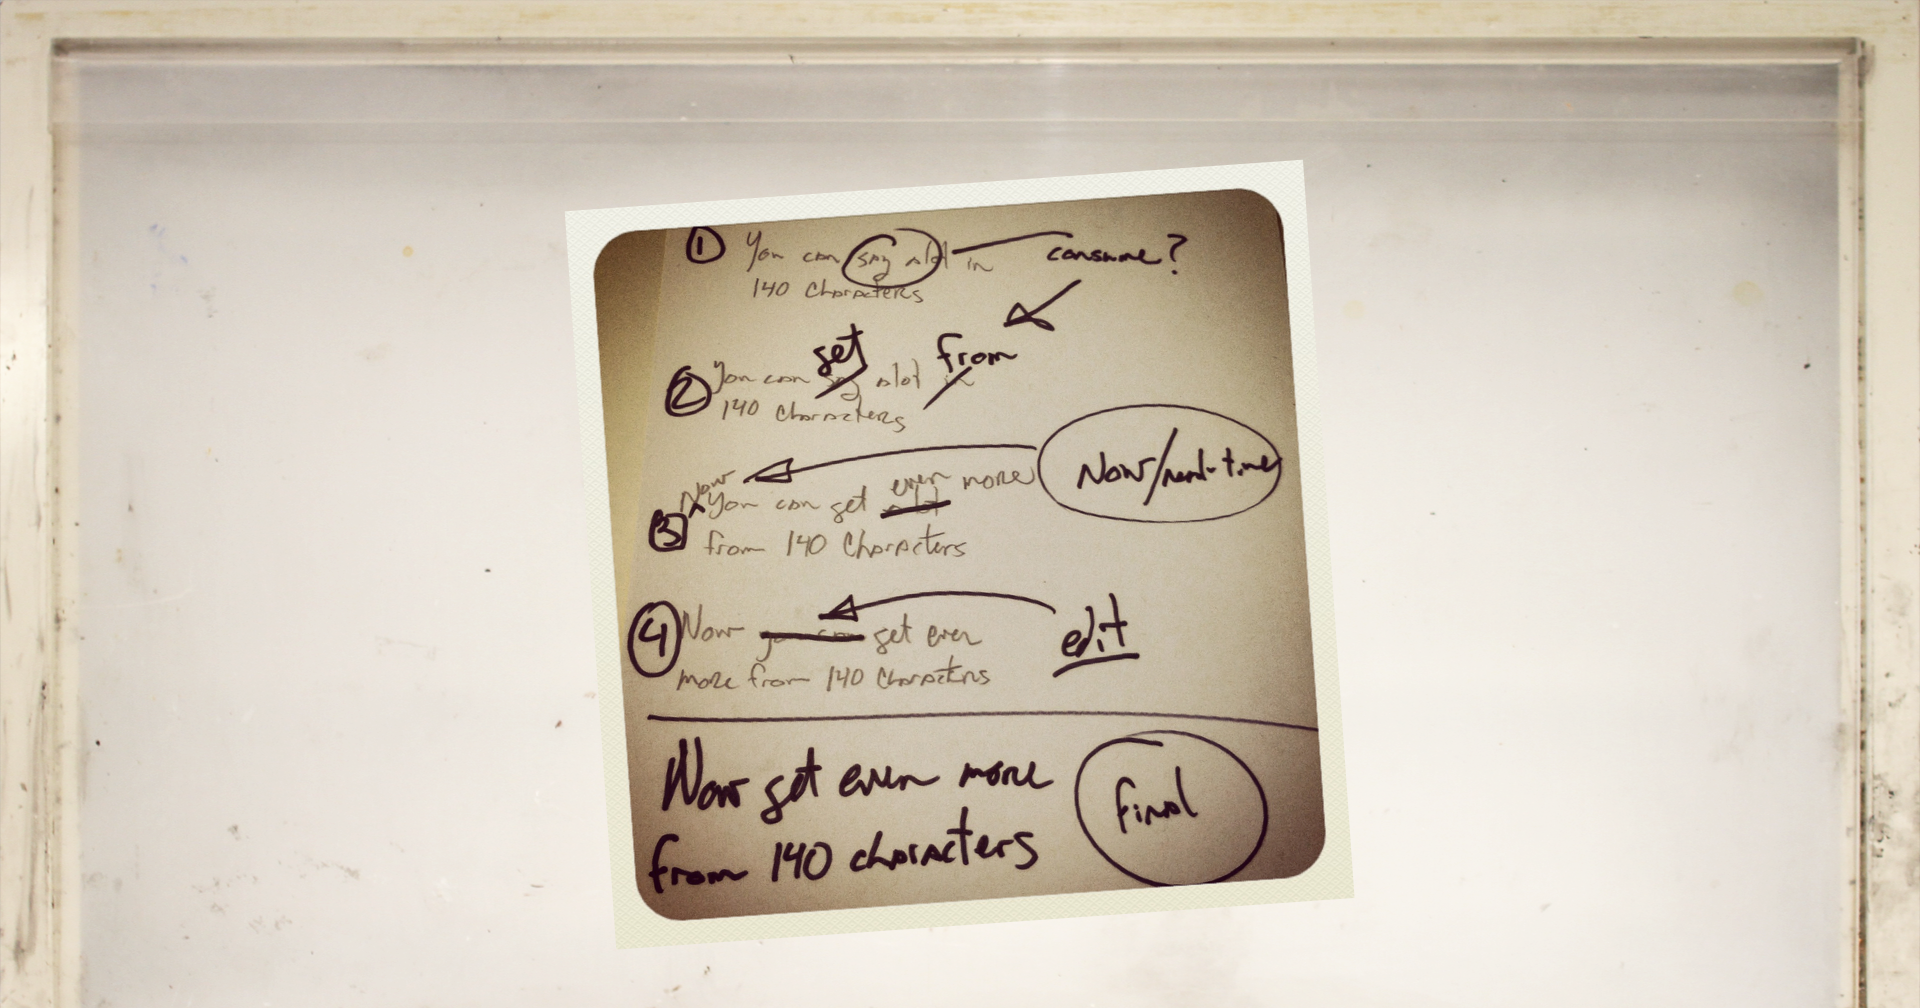 ① You can say alot in consume?
140 Characters
get from
② You can say alot in
140 Characters
Now/real-time
Now even more
③ You can get alot
from 140 Characters
④ Now you can get even edit
more from 140 Characters
Now get even more
from 140 characters
final